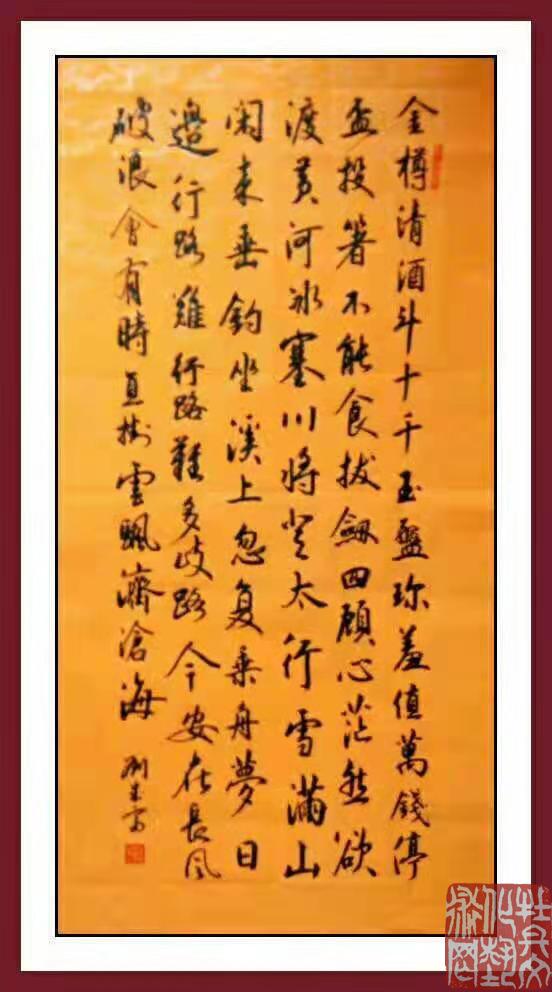 金樽清酒斗十千玉盤珍羞值萬錢停
盃投箸不能食拔劍四顧心茫然欲
渡黃河冰塞川將登太行雪滿山
閑來垂釣坐溪上忽復乘舟夢日
邊行路難行路難多歧路今安在長風
破浪會有時直掛雲帆濟滄海
牡丹文
化藝